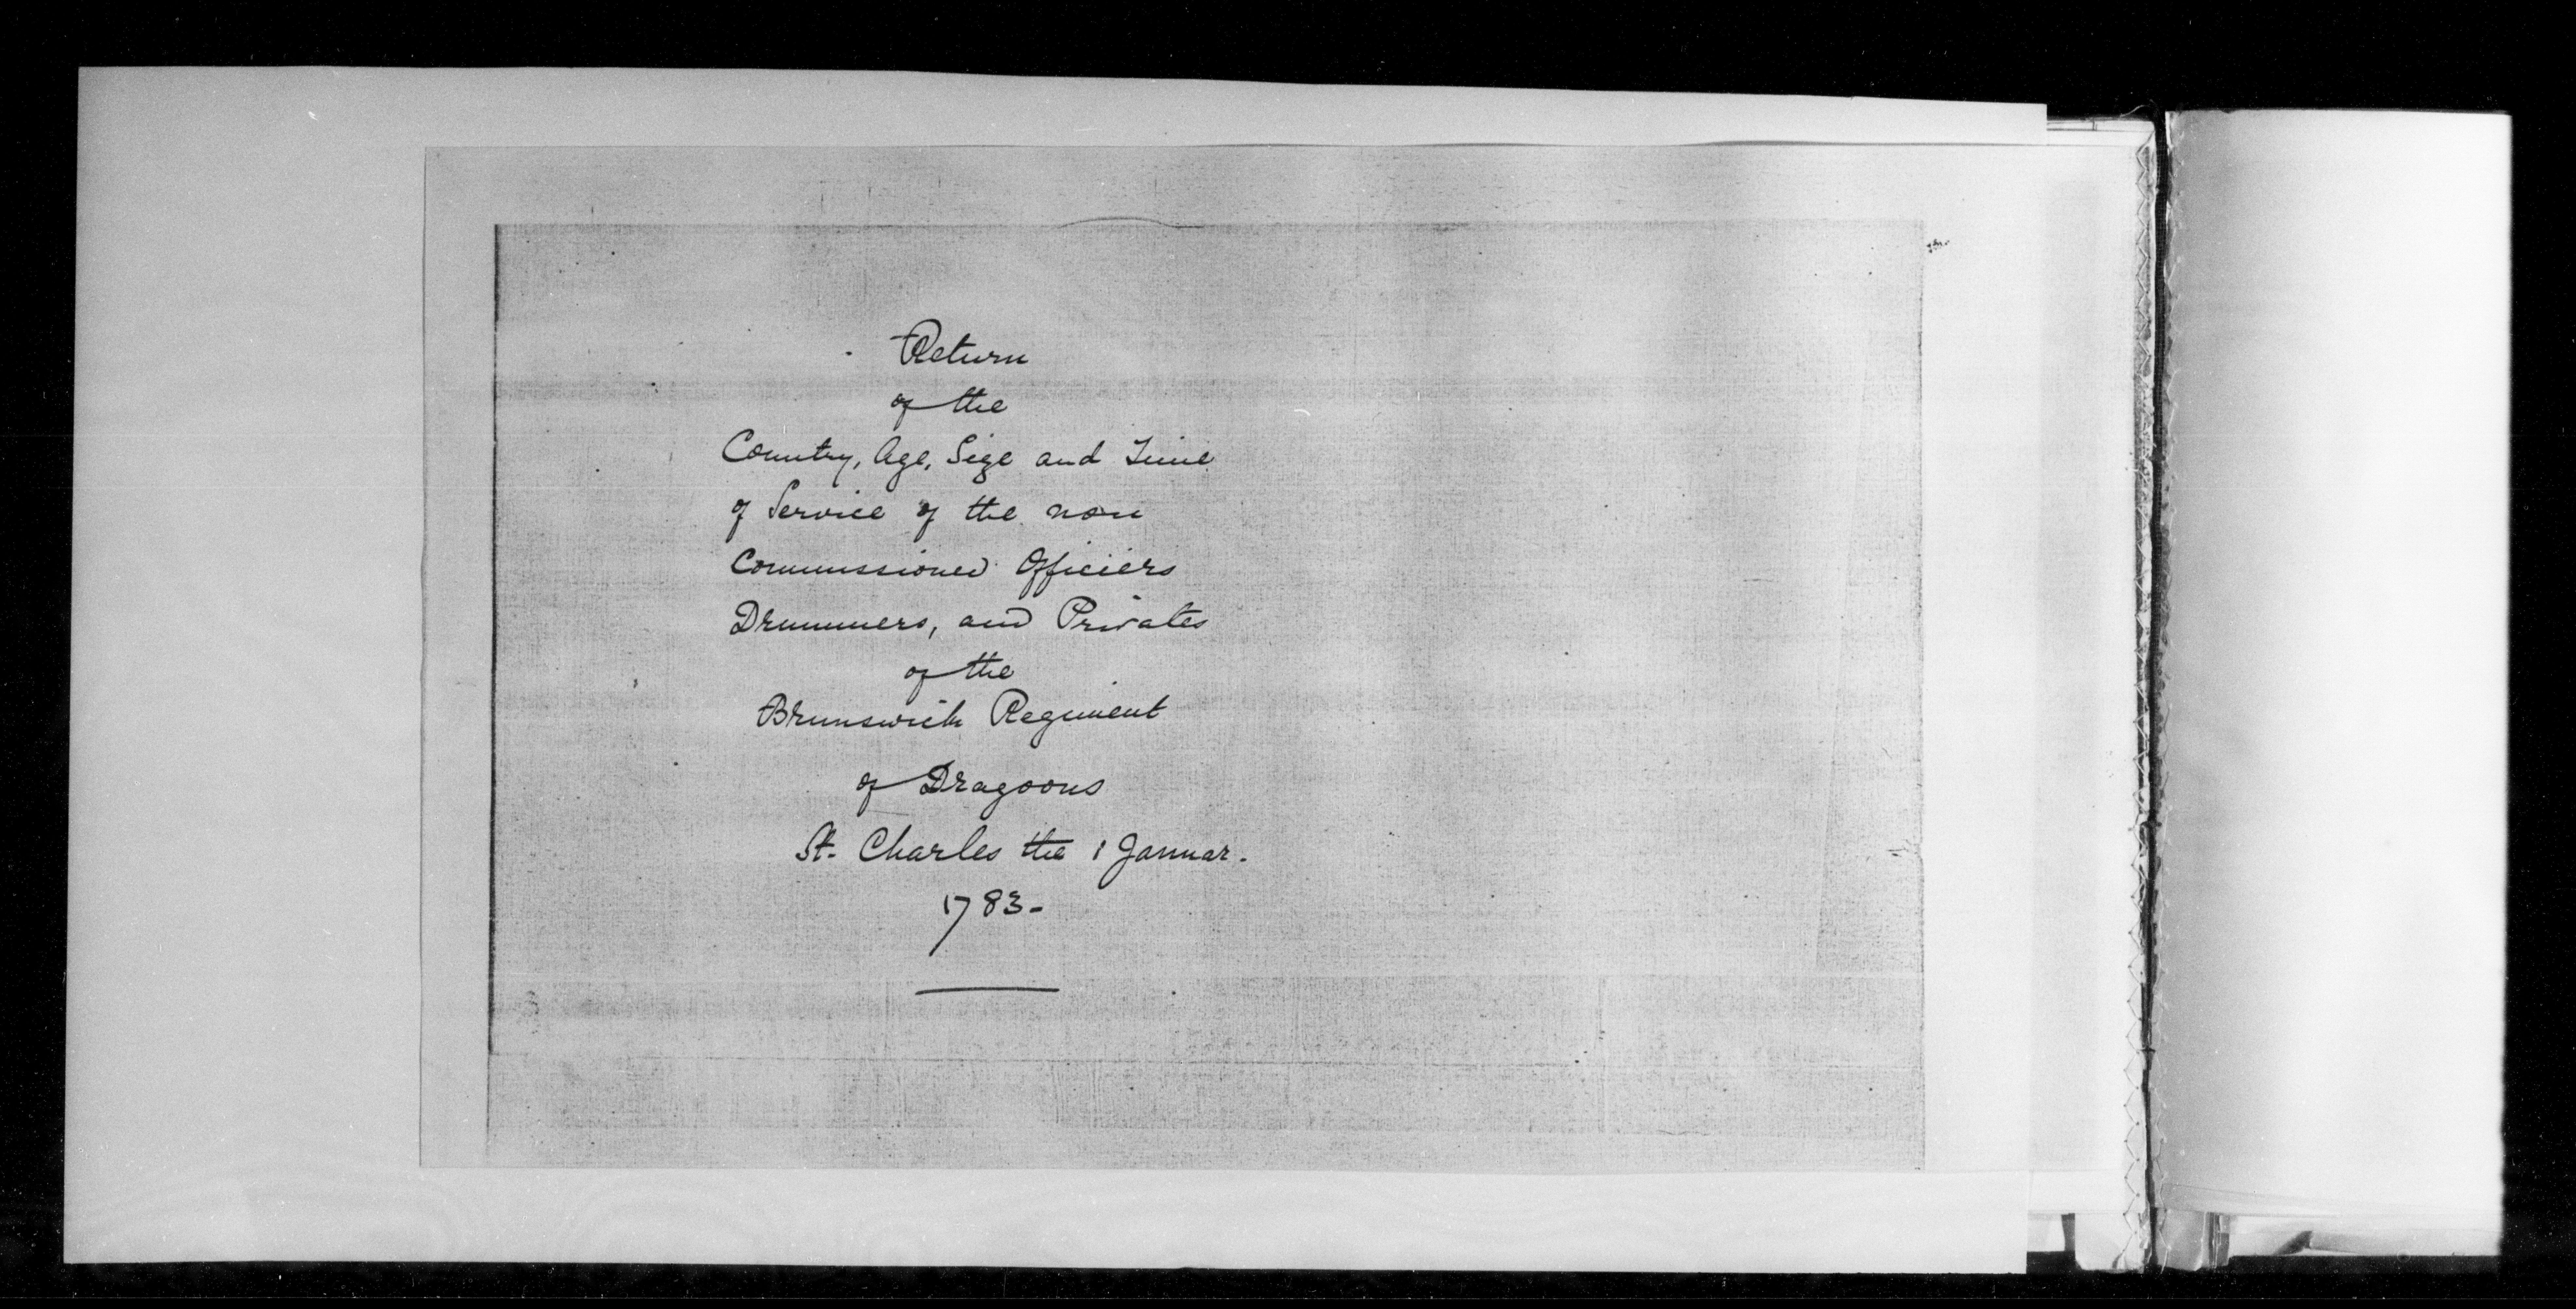 Return
of the
Country, Age, Size and Time
of Service of the non
Commissioned Officiers
Drummers, and Privates
of the
Brunswick Regiment
of Dragoons
St. Charles the 1 Januar.
1783-